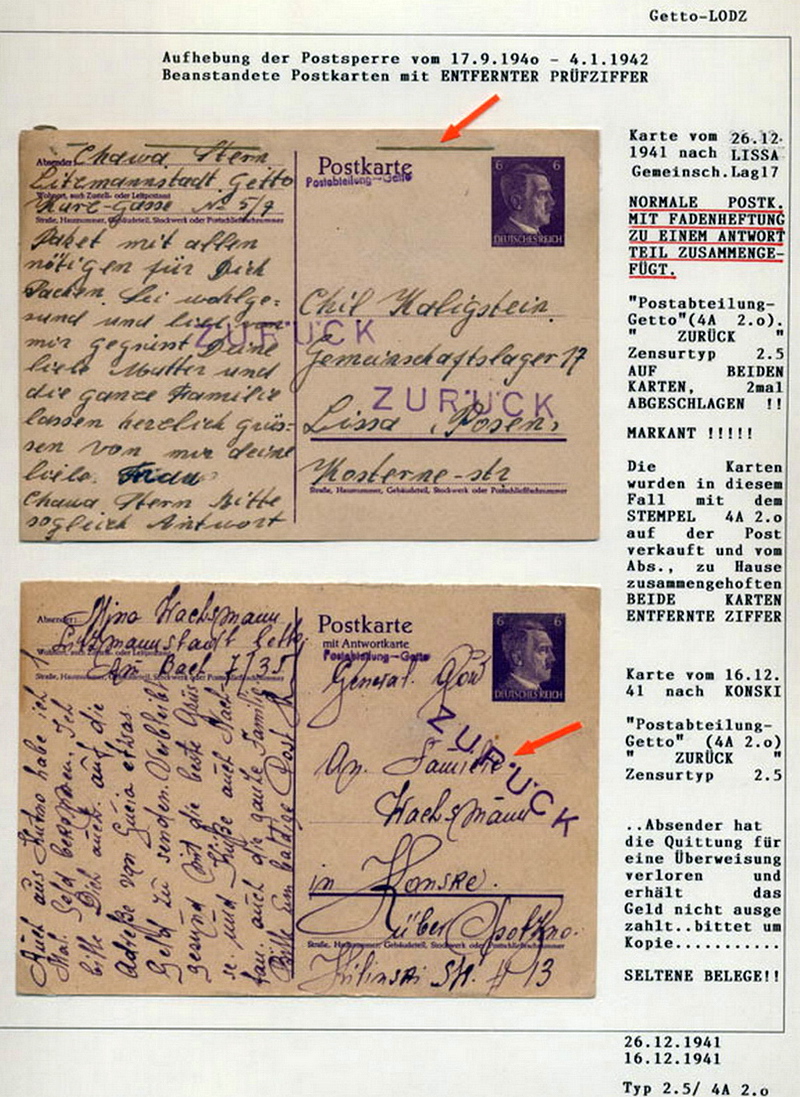 Getto-LODZ
Aufhebung der Postsperre vom 17.9.194o - 4.1.1942
Beanstandete Postkarten mit ENTFERNTER PRÜFZIFFER
Absender: Chawa Stern
Litzmannstadt Getto
Wohnort, auch Zustell- oder Leitpostamt
Gasse № 5/7
Straße, Hausnummer, Gebäudeteil, Stockwerk oder Postschließfachnummer
Paket mit allen
nötigen für Dich
Sachen. Sei wohlge-
sund und
mir gegrüsst Deine
liebe Mutter und
die ganze Familie
lassen herzlich grüs-
sen von mir deine
liebe.
Chawa Stern Bitte
sogleich Antwort
ZURÜCK
Postkarte
Postabteilung-Getto
6 6
DEUTSCHES REICH
Chil Kaligstein
Gemeinschaftslager 17
ZURÜCK
Lissa (Posen)
Kosterne-str
Straße, Hausnummer, Gebäudeteil, Stockwerk oder Postschließfachnummer
Karte vom 26.12.
1941 nach LISSA
Gemeinsch.Lag17
NORMALE POSTK.
MIT FADENHEFTUNG
ZU EINEM ANTWORT
TEIL ZUSAMMENGE-
FÜGT.
"Postabteilung-
Getto"(4A 2.o).
" ZURÜCK "
Zensurtyp 2.5
AUF BEIDEN
KARTEN, 2mal
ABGESCHLAGEN !!
MARKANT !!!!!
Die Karten
wurden in diesem
Fall mit dem
STEMPEL 4A 2.o
auf der Post
verkauft und vom
Abs., zu Hause
zusammengehoften
BEIDE KARTEN
ENTFERNTE ZIFFER
Absender: Mina Wachsmann
Litzmannstadt Getto
Wohnort, auch Zustell- oder Leitpostamt
Am Bach 7/35
Straße, Hausnummer, Gebäudeteil, Stockwerk oder Postschließfachnummer
Auch aus Kutno habe ich
Mal Geld bekommen. Ich
bitte Dich auch auf die
Adreße von Gucia etwas
Geld zu senden. Verbleibt
gesund mit die beste Grüs-
se. und Küße auch
auch die ganze Familie
Bitte um baldige Post
Postkarte
mit Antwortkarte
Postabteilung-Getto
6 6
DEUTSCHES REICH
General. Gouv
ZURÜCK
An Familie
Wachsmann
in Konske.
über Opotzno.
Straße, Hausnummer, Gebäudeteil, Stockwerk oder Postschließfachnummer
Kilinski Str. 13
Karte vom 16.12.
41 nach KONSKI
"Postabteilung-
Getto" (4A 2.o)
" ZURÜCK "
Zensurtyp 2.5
..Absender hat
die Quittung für
eine Überweisung
verloren und
erhält das
Geld nicht ausge
zahlt..bittet um
Kopie...........
SELTENE BELEGE!!
26.12.1941
16.12.1941
Typ 2.5/ 4A 2.o